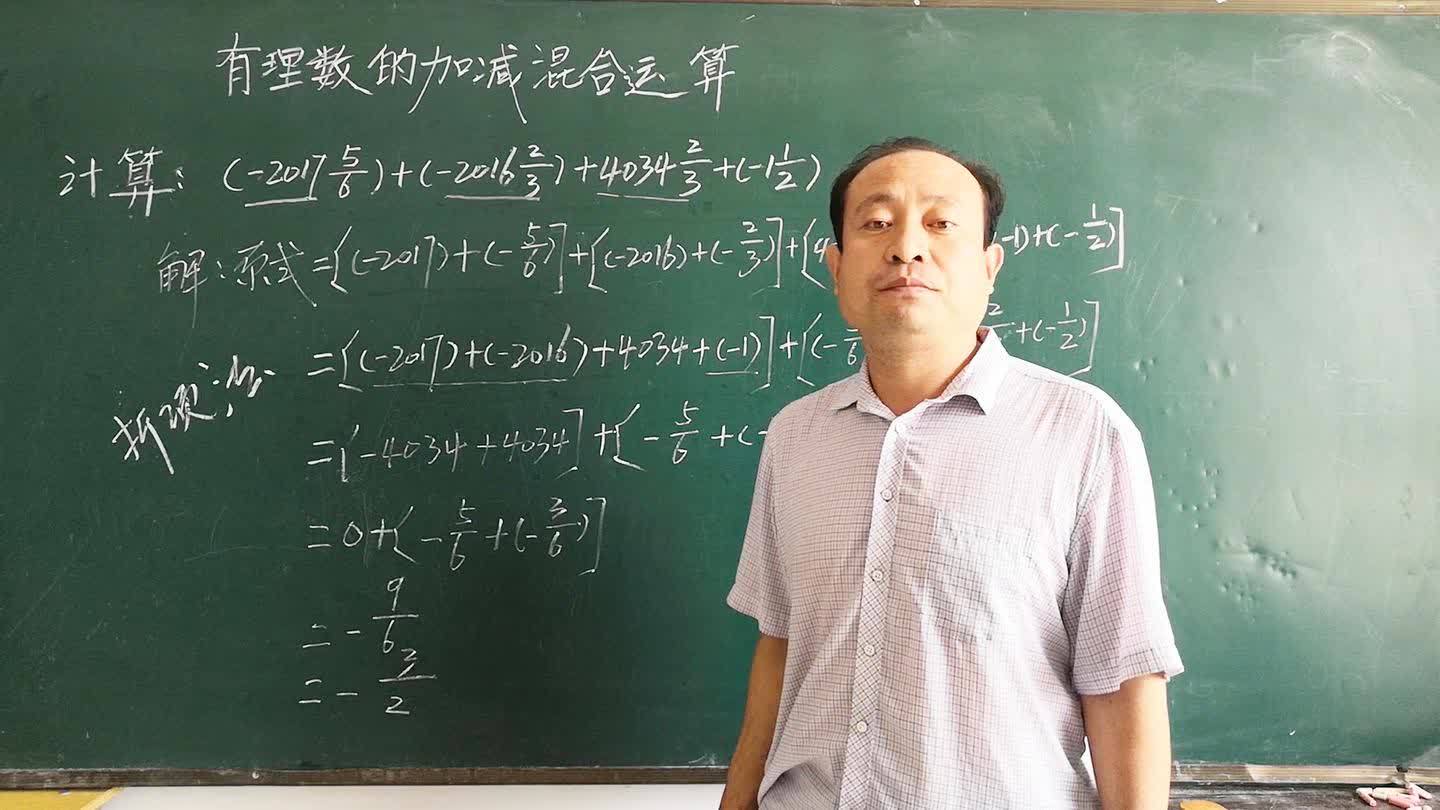 有理数的加减混合运算
计算: (-2017 5/6)+(-2016 2/3)+4034 2/3+(-1 1/2)
解:原式=[(-2017)+(-5/6)]+[(-2016)+(-2/3)]+[4 -1)+(-1/2)]
=[(-2017)+(-2016)+4034+(-1)]+[(- /6 2/ +(-1/2)]
拆项法
=[-4034+4034]+[-5/6+(-
=0+[-5/6+(-3/6)]
=-9/6
=-3/2